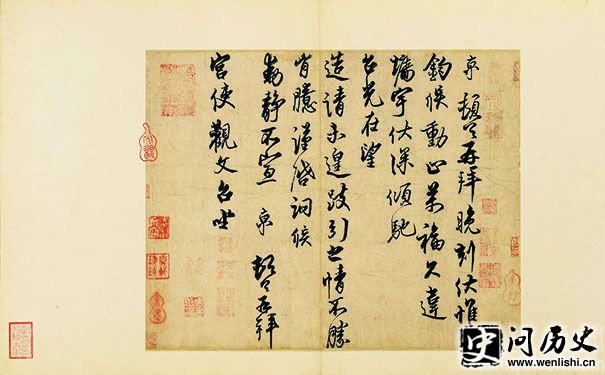 京 頓首再拜晚刻伏惟
鈞候動止萬福久違
墻宇伏深傾馳
台光在望
造請未遑跂引之情不勝
胷臆謹啓詗候
動靜不宣 京 頓首再拜
宮使觀文台坐
史 问历史
www.wenlishi.cn